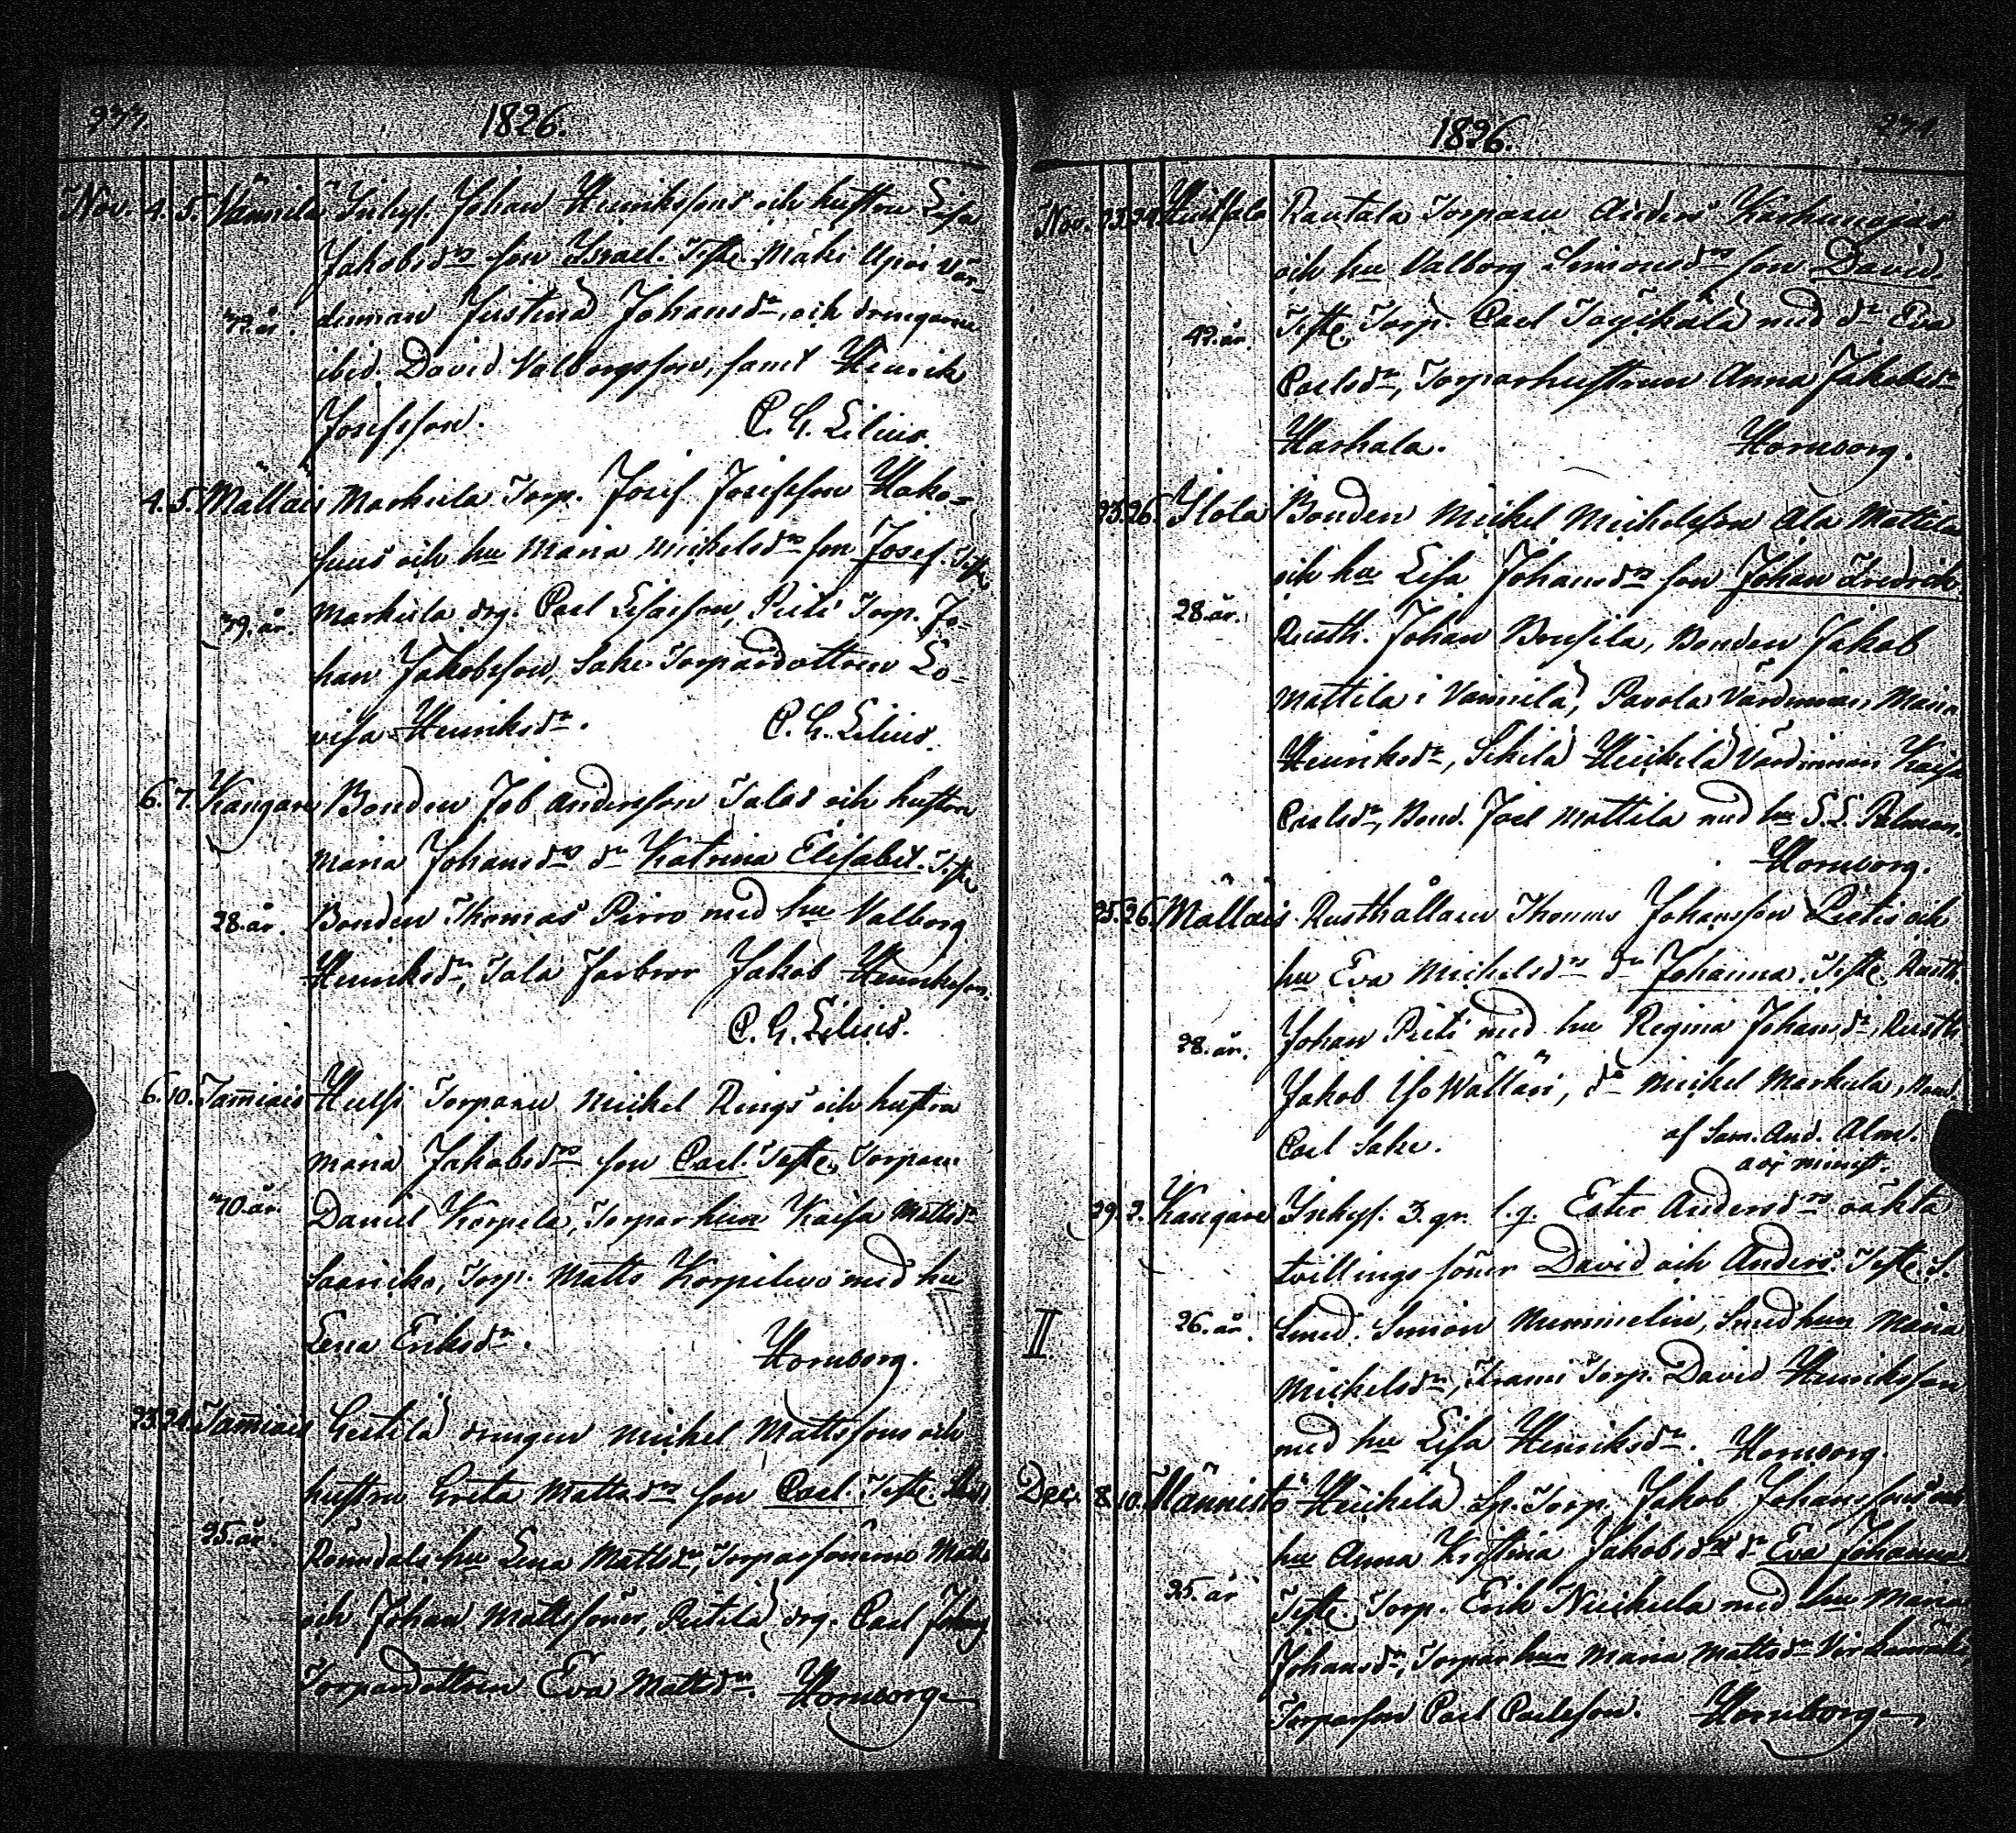 1826.
Nov. 4. 5. Vännilä Inhys. Johan Henrikssons och hustru Lisa
Jakobsdrs son Israel. Teste. Mäki Upoi Vär-
39. år. dinnan Justina Johansdr, och drengarna
ibid. David Valborgsson, samt Henrik
Josefsson. C. G. Lilius.
4. 5. Mällais Markula Torp. Josef Josefsson Hako-
och hu Maria Mickelsdrs son Josef. Teste
39. år. Markula drg. Carl Esaisson, Pieti Torp. Jo-
han Jakobsson, Sake Torpardottren Lo-
visa Henriksdr. C. G. Lilius.
6. 7. Kangare Bonden Job Andersson Talas och hustru
Maria Johansdrs dr Katrina Elisabet. Teste
28. år. Bonden Thomas Pirro med hu Valborg
Henriksdr, Tala farbror Jakob Henriksson.
C. G. Lilius.
6. 10. Tam̄iais Torparen Mickel Rings och hustru
Maria Jakobsdrs son Carl. Teste, Torparn
40. år. Daniel Korpela, Torparhun Kaisa Mattsdr
Saariko, Torp. Matts med hu
Lena Eriksdr. Hornborg.
23. 24. Tam̄iais drengen Mickel Mattssons och
hustru Greta Mattsdrs son Carl. Teste.
25. år. hu Lena Mattsdr, Torparsönerne Matts
och Johan Mattssöner, drg. Carl
Torpardottren Eva Mattsdr. Hornborg
1826.
Nov. 23. 24. Rautala Torparen Anders Karhunojas
och hu Valborg Simonsdrs son David.
42. år. Teste, Torp. Carl med dr Eva
Carlsdr, Torparhustrun Anna Jakobsdr
Harhala. Hornborg.
25. 26. Ilola Bonden Mickel Mickelsson Ala Mattila
och hu Lisa Johansdrs son Johan Fredrik.
28. år. Rusth. Johan Bonsila, Bonden Jakob
Mattila i Vännilä, Pavola Värdinnan Maria
Henriksdr, Heickilä Värdinnan Kaisa
Carlsdr, Bond. Joel Mattila med hu S. L. Palman.
Hornborg.
25. 26. Mällais Rusthållaren Thomas Johansson Pietis och
hu Eva Mickelsdrs dr Johanna. Teste. Rusth.
28. år. Johan Pieti med hu Regina Johansdr, Rusth.
Jakob Iso Wälläri, do Mickel Markula, Bond.
Carl Sake. af Sam. And. Alm.
adj minist.
29. 2. Kangare Inhys. Ester Andersdrs oäkta
tvillings söner David och Anders. Teste. S.
II 26. år. Smed. Simon Nummelin, Smedhun Maria
Mickelsdr, Torp. David Henriksson
med hu Lisa Henriksdr. Hornborg.
Dec. 8. 10. Männistö Heickilä Sp. Torp. Jakob Johanssons och
hu Anna Kristina Jakobsdrs dr Eva Johanna
25. år Teste, Torp. Erik med hu Maria
Johansdr, Torparhun Maria Mattsdr Virkamäki,
Torparson Carl Carlsson. Hornborg